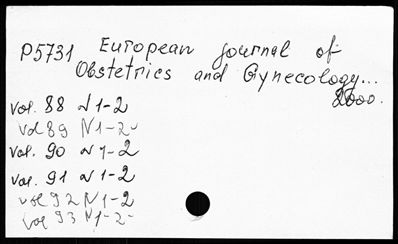 P5731 European journal of
Obstetrics and Gynecology...
2000.
vol. 88 N 1-2
vol 89 N 1-2
vol. 90 N 1-2
vol. 91 N 1-2
vol 92 N 1-2
vol 93 N 1-2